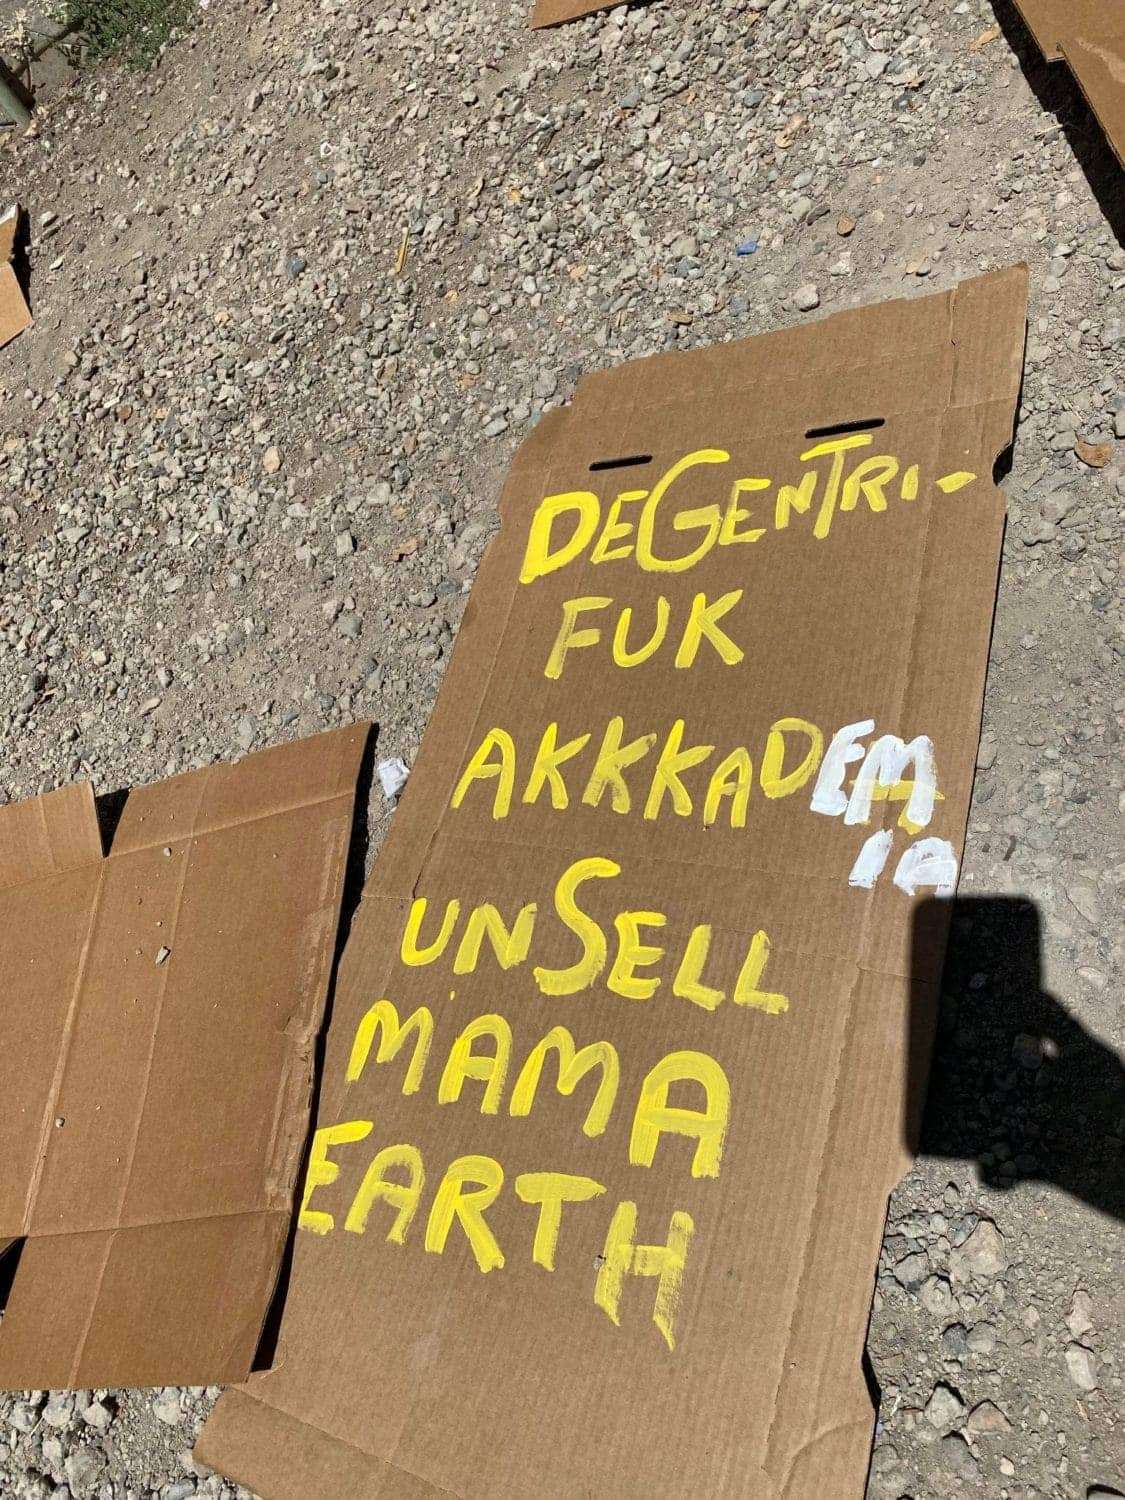 DEGENTRI-
FUK
AKKKADEM
IA
UNSELL
MAMA
EARTH